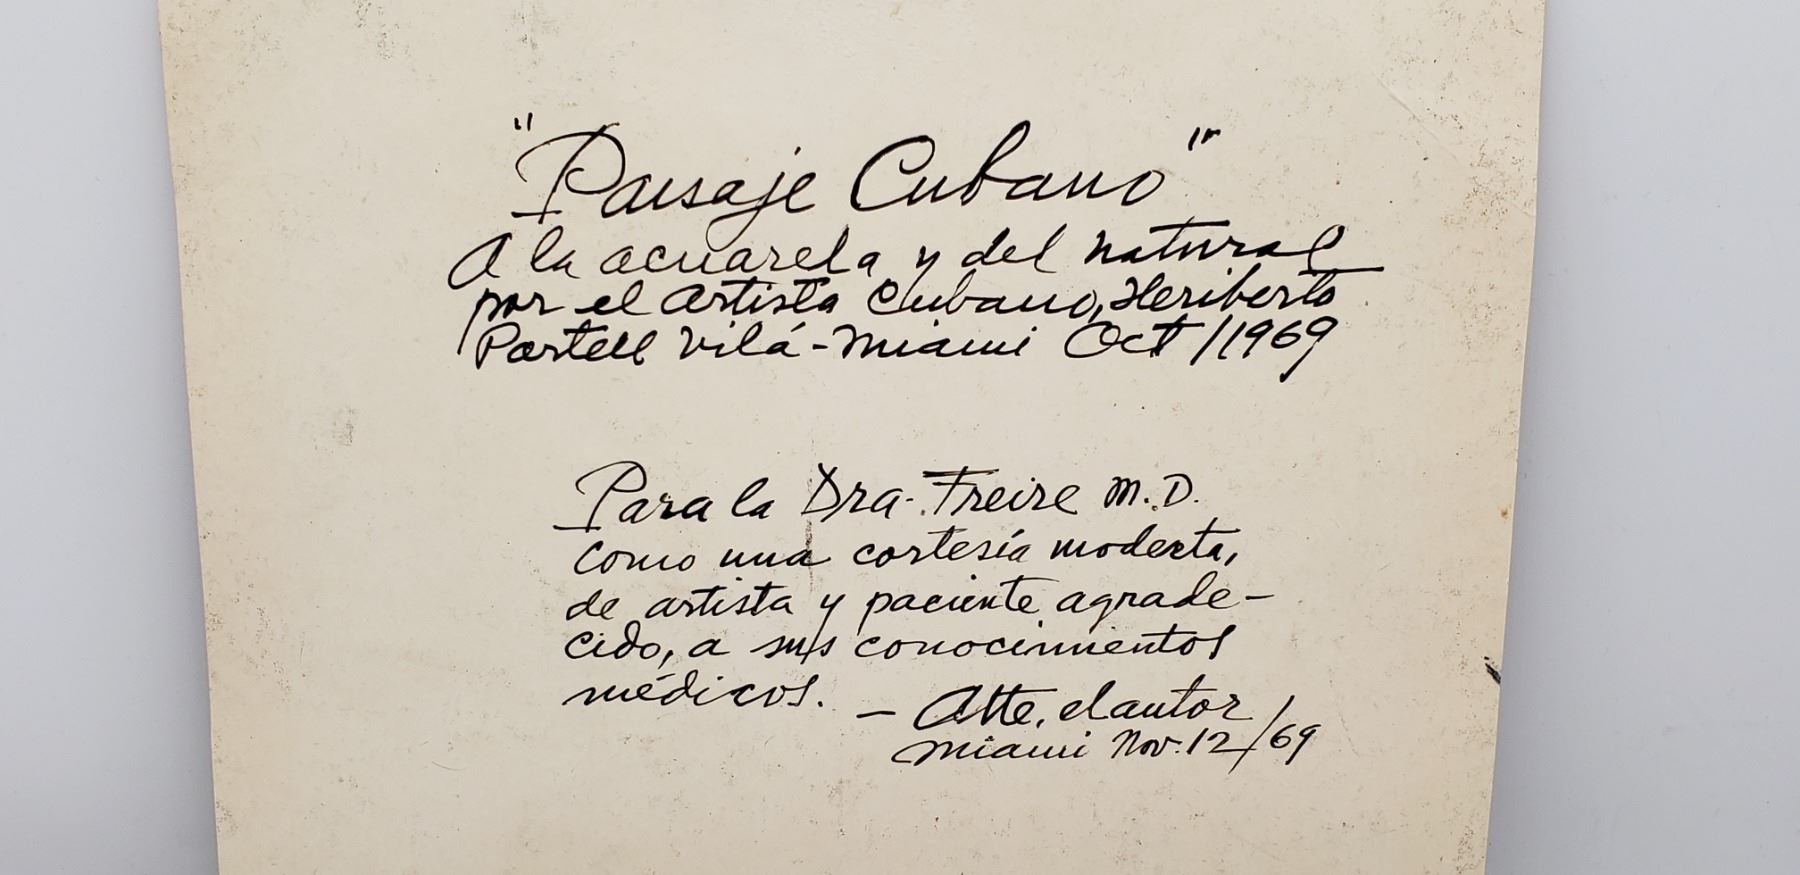 "Paisaje Cubano"
A la acuarela y del natural
por el artista Cubano, Heriberto
Portell Vilá - Miami Oct / 1969
Para la Dra. Freire M.D.
como una cortesía modesta,
de artista y paciente agrade-
cido, a sus conocimientos
médicos. - Atte, el autor
Miami Nov. 12/69